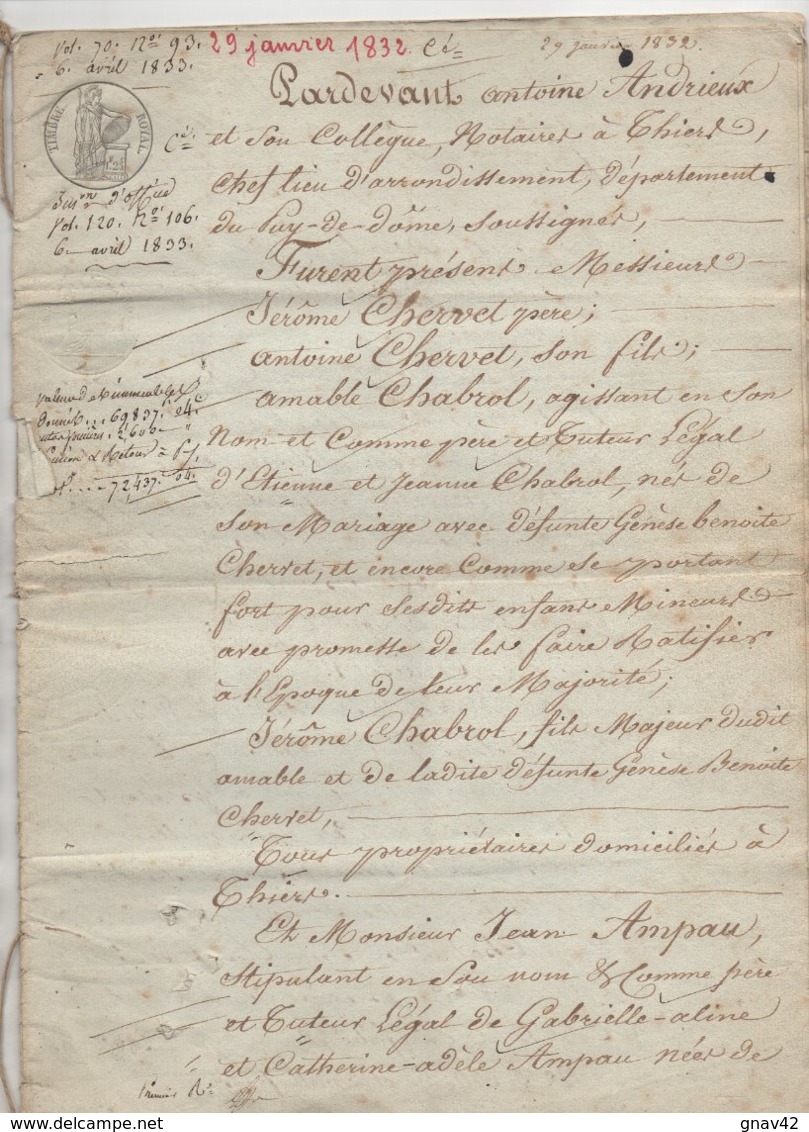 Vol. 70. N.° 93.
6. avril 1833.
29 janvier 1832. Cé=
29 janvier 1832.
TIMBRE ROYAL
Cé=
d'office
Vol. 120. N.° 106.
6. avril 1833.
Pardevant antoine Andrieux
et son Collègue, Notaires à Thiers,
Chef lieu d'arrondissement, Département
du Puy-de-dôme, soussignés,
Furent présens Messieurs
Jérôme Chervet père;
antoine Chervet, son fils;
amable Chabrol, agissant en son
Nom et Comme père et Tuteur Légal
d'Etienne et Jeanne Chabrol, nés de
son Mariage avec défunte Génèse benoite
Chervet, et encore Comme se portant
fort pour sesdits enfans Mineurs
avec promesse de les faire Ratifier
à l'Epoque de leur Majorité;
Jérôme Chabrol, fils Majeur dudit
amable et de ladite défunte Génèse Benoite
Chervet,
Tous propriétaires domiciliés à
Thiers.
Et Monsieur Jean Ampau,
stipulant en son nom & Comme père
et Tuteur Légal de Gabrielle-aline
et Catherine-adèle Ampau nées de
69837. 04.
2600
72,437. 04.
Premier R.
Delcampe.net
gnav42